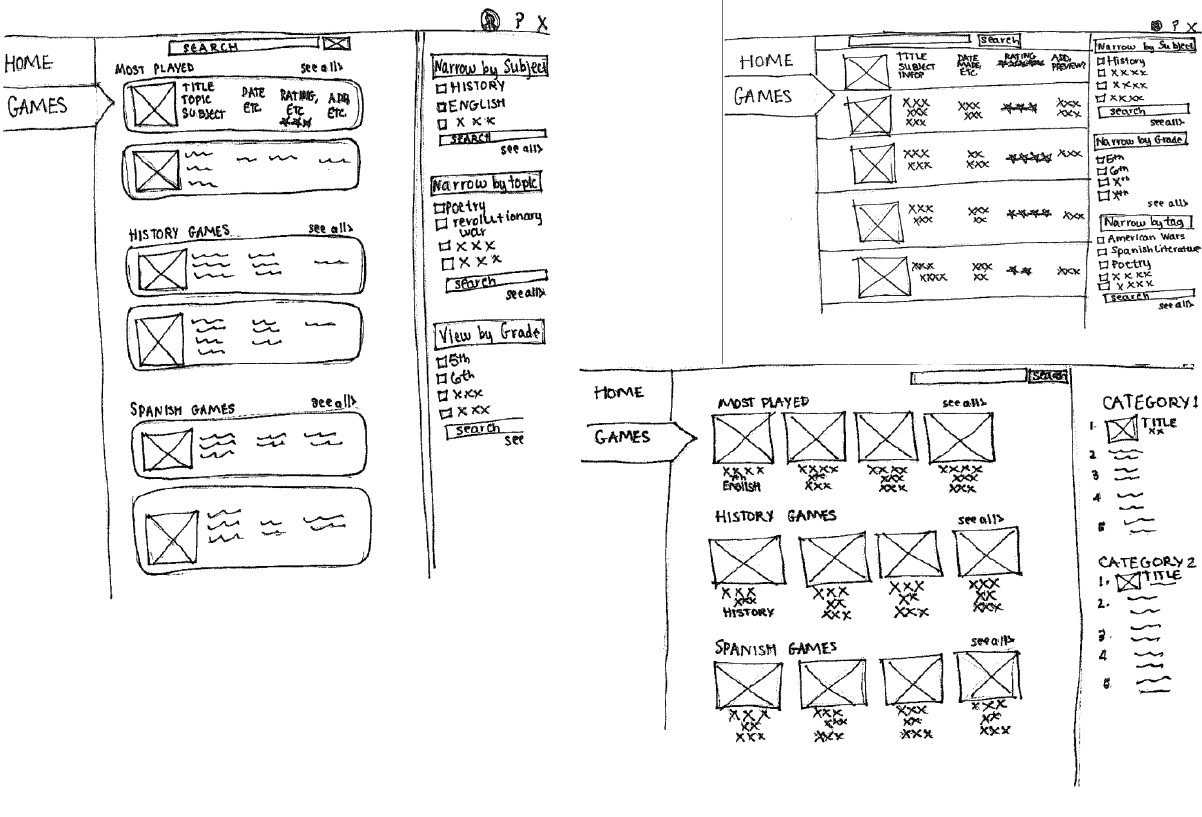 P X
SEARCH
HOME
GAMES
MOST PLAYED see all>
TITLE
TOPIC
SUBJECT
DATE
ETC.
RATING,
ETC
ADD,
ETC.
HISTORY GAMES see all>
SPANISH GAMES see all>
Narrow by Subject
HISTORY
ENGLISH
X X X
SEARCH
see all>
Narrow by topic
Poetry
revolutionary
war
X X X
X X X
search
see all>
View by Grade
5th
6th
XXX
X XX
search
see
P X
search
HOME
GAMES
TITLE
SUBJECT
INFO?
DATE
MADE,
ETC.
RATING
ADD,
PREVIEW?
XXX XXX XXX
XXX XX XXX
XXX
XXX XX XXX
XXX XXX
XXX XXX XXX
XX XX
XXX XXX XXX
XXXX XX
Narrow by Subject
History
XXXX
XXXX
XXXX
search
see all>
Narrow by Grade
5th
6th
Xth
Xth
see all>
Narrow by tag
American Wars
Spanish Literature
Poetry
XXXX
XXXX
search
see all>
search
HOME
GAMES
MOST PLAYED see all>
XXXX XXXX XXXX XXXX
XXX XXX XXX
ENGLISH XXX XXX XXX
HISTORY GAMES see all>
XXX XXX XXX XXX
XXX XX XX XX
HISTORY XXX XXX XXX
SPANISH GAMES see all>
XXX XXX XXX XXX
XX XXX XX XX
XXX XXX XXX XXX
CATEGORY 1
1. TITLE
XX
2
3
4
5
CATEGORY 2
1. TITLE
2.
3.
4
5.